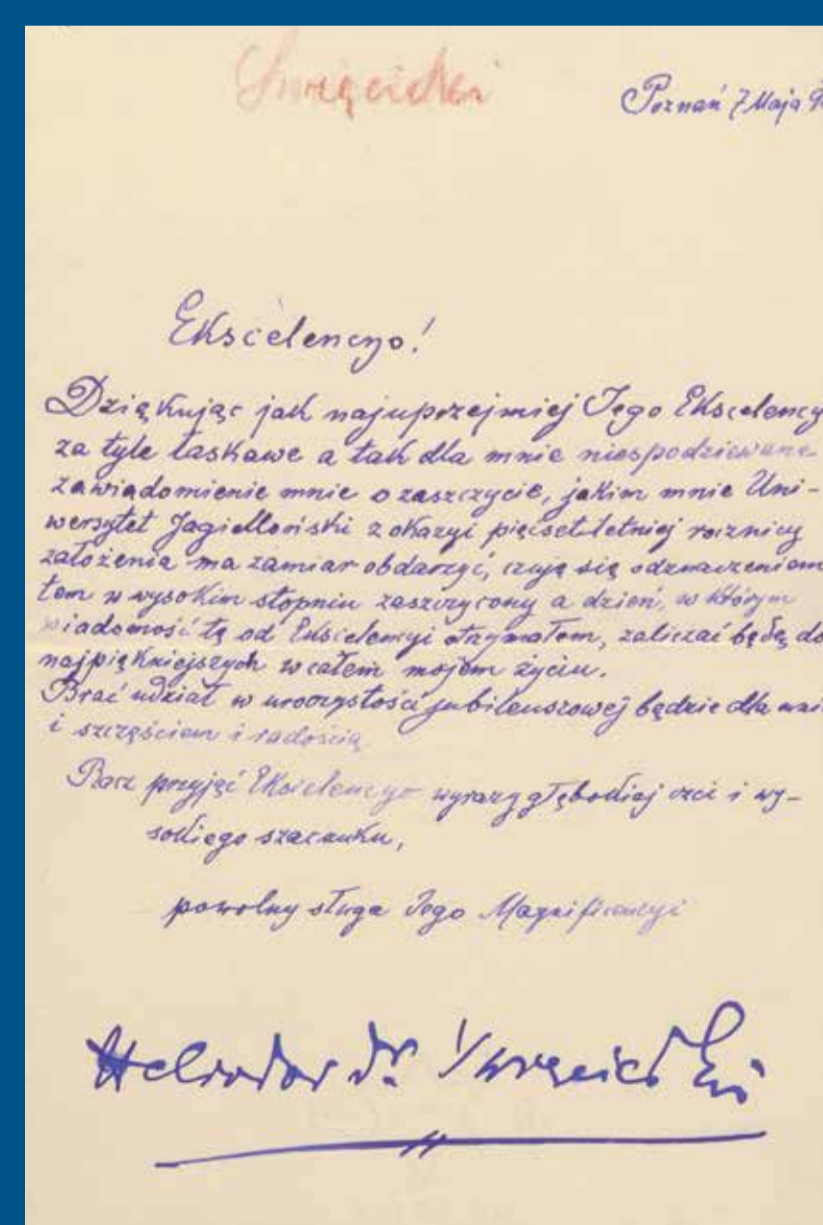 Święcicki
Poznań 7 Maja
Ekscelencyo!
Dziękując jak najuprzejmiej Jego Ekscelency
za tyle łaskawe a tak dla mnie niespodziewane
zawiadomienie mnie o zaszczycie, jakim mnie Uni-
wersytet Jagielloński z okazyi pięćsetletniej rocznicy
założenia ma zamiar obdarzyć, czuję się odznaczeniem
tem w wysokim stopniu zaszczycony a dzień, w którym
wiadomość tę od Ekscelencyi otrzymałem, zaliczać będę do
najpiękniejszych w całem mojem życiu.
Brać udział w uroczystości jubileuszowej będzie dla mni
i szczęściem i radością
Racz przyjąć Ekscelencyo wyrazy głębokiej czci i wy-
sokiego szacunku,
powolny sługa Jego Magnificencyi
Heliodor dr. Święcicki